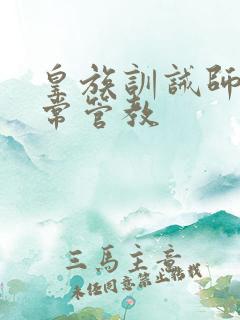 皇族訓誡師
常管教
三馬主意
未经同意禁止转载